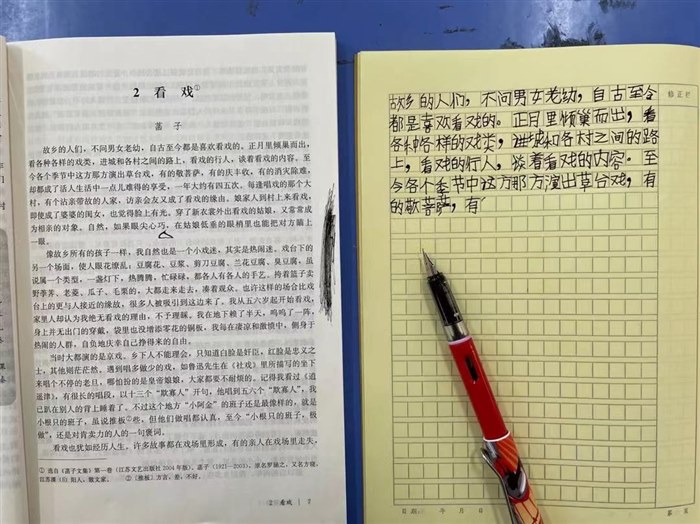 2 看 戏①
菡 子
故乡的人们，不问男女老幼，自古至今都是喜欢看戏的。正月里倾巢而出，
看各种各样的戏类，进城和各村之间的路上，看戏的行人，谈看看戏的内容。至
今各个季节中这方那方演出草台戏，有的敬菩萨，有的庆丰收，有的消灾除难，
却都成了活人生活中一点儿难得的享受，一年大约有四五次。每逢唱戏的那个大
村，有个沾亲带故的人家，访亲会友又成了看戏的缘由，娘家人到村上来看戏，
即使成了婆婆的闺女，也觉得脸上有光。穿了新衣裳外出看戏的姑娘，又常常成
为相亲的对象。自然，如果眼尖心巧，在姑娘低垂的眼梢里也能把对方瞄上
一眼。
像故乡所有的孩子一样，我自然也是一个小戏迷，其实是热闹迷。戏台下的
另一个场面，使人眼花缭乱，豆腐花、豆浆、剪刀豆腐、兰花豆腐、臭豆腐，虽
说属一个类型，一盏灯下，热腾腾，忙碌碌，都各人有各人的手艺。挎着篮子卖
野荸荠、老菱、瓜子、毛栗的，大都走来走去，凑着观众。也许这样的场合比戏
台上的更与人接近的缘故，很多人被吸引到这边来了。我从五六岁起开始看戏，
家里人却认为我绝无看戏的理由，不予理睬。我在地下赖了半天，呜呜了一阵，
身上并无出门的穿戴，袋里也没增添零花的铜板，我每在凄凉和激愤中，侧身于
热闹的人群，自负地庆幸自己挣得来的自由。
当时大都演的是京戏。乡下人不能理会，只知道白脸是奸臣，红脸是忠义之
士，其他则茫茫然。遇到唱多做少的戏，如鲁迅先生在《社戏》里所描写的坐下
来唱个不停的老旦，哪怕扮的是皇帝娘娘，大家都要不耐烦的。记得我看过《逍
遥津》，有很长的唱段，以十三个“欺寡人”开句，他唱到五六个“欺寡人”，我
已趴在别人的背上睡着了。不过这个地方“小阿金”的班子还是最像样的，就是
小根只的班子，虽说推板②些，但他们做唱都认真，至今“小根只的班子，极
做”，还是对肯卖力的人的一句褒词。
看戏也犹如经历人生。许多故事都在戏场里形成，有的亲人在戏场里走失，
① 选自《菡子文集》第一卷（江苏文艺出版社 2004 年版）。菡子（1921—2003），原名罗涵之，又名方晓，
江苏溧阳人，散文家。 ②〔推板〕方言，差，不好。
2 看戏 7
故乡的人们，不问男女老幼，自古至今
都是喜欢看戏的。正月里倾巢而出，看
各种各样的戏类，进城和各村之间的路
上，看戏的行人，谈着看戏的内容。至
今各个季节中这方那方演出草台戏，有
的敬菩萨，有
修正栏
日期 年 月 日
第 页